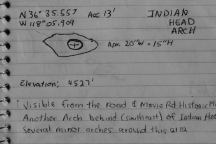 N 36° 35.557 Acc 13'
W 118° 05.909
INDIAN
HEAD
ARCH
Apx. 20"W - 15"H
Elevation: 4527'
Visible from the road @ Movie Rd Historic
Another Arch behind (southeast) of Indian Head
Several minor arches around this area